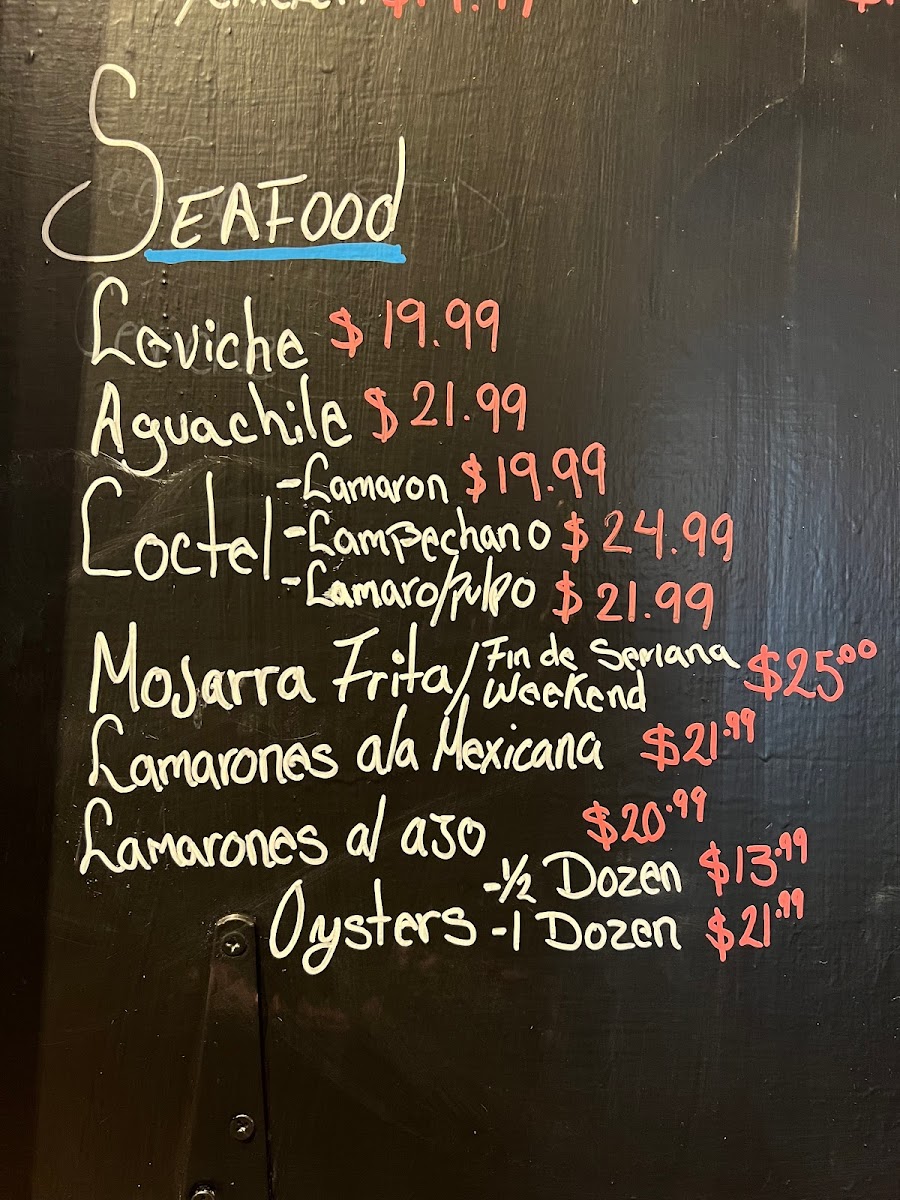 SEAFOOD
Ceviche $19.99
Aguachile $21.99
Coctel -Camaron $19.99
-Campechano $24.99
-Camaro/pulpo $21.99
Mojarra Frita/Fin de Semana Weekend $25.00
Camarones a la Mexicana $21.99
Camarones al ajo $20.99
Oysters -1/2 Dozen $13.99
-1 Dozen $21.99